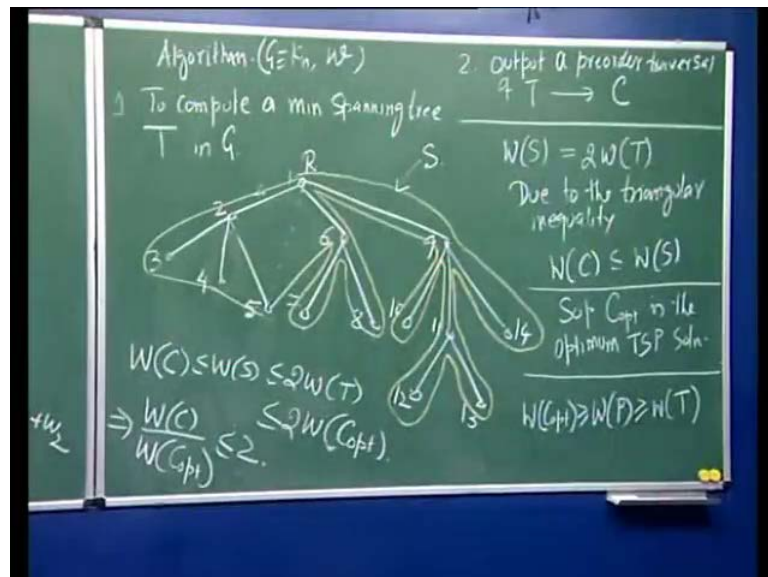 Algorithm. (G=Kn, W)
1 To compute a min spanning tree
T in G.
R
S
1
2
3
4
5
6
7
8
9
10
11
12
13
14
W(C) ≤ W(S) ≤ 2W(T)
≤ 2W(Copt).
⇒ W(C)/W(Copt) ≤ 2.
+w2
2. output a preorder traversal
of T → C
W(S) = 2W(T)
Due to the triangular
inequality
W(C) ≤ W(S)
Sup Copt is the
optimum TSP Soln.
W(Copt) ≥ W(P) ≥ W(T)